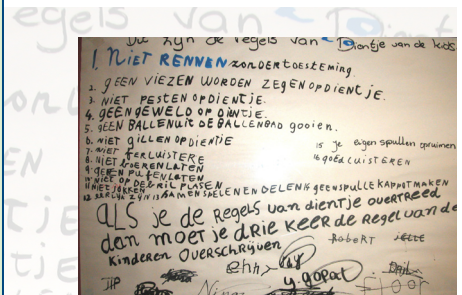 Dit zijn de regels van Dientje van de kids
1. NiET RENNEN zonder toesteming.
2. gEEN VIEZEN WORDEN ZEGEN OP DiENTJE.
3. NiET PESTEN OP DiENTJE.
4. gEEN gEWELD OP DiNTJE.
5. gEEN BALLEN uit DE BALLENBAD gooien.
6. NiET GILLEN OP DiENTJE
7. NiET FERLUiSTERE
8. NiET boEREN LATEN
9. GEEN PUFEN LATEN
10 NIET OP DE BRiL PLASEN
11 NiET JOKKEN
12 EERLijK ZijN 13 SAMEN SPELEN EN DELEN 14 GEEN SPULLE KAPPOT MAKEN
15 je eigen spullen opruimen
16 goed LUiSTEREN
ALS je de Regels van dientje overtreed
dan moet je dRiE KEER de Regel van de
kinderen Overschrijven
RobeRT jette
Floor